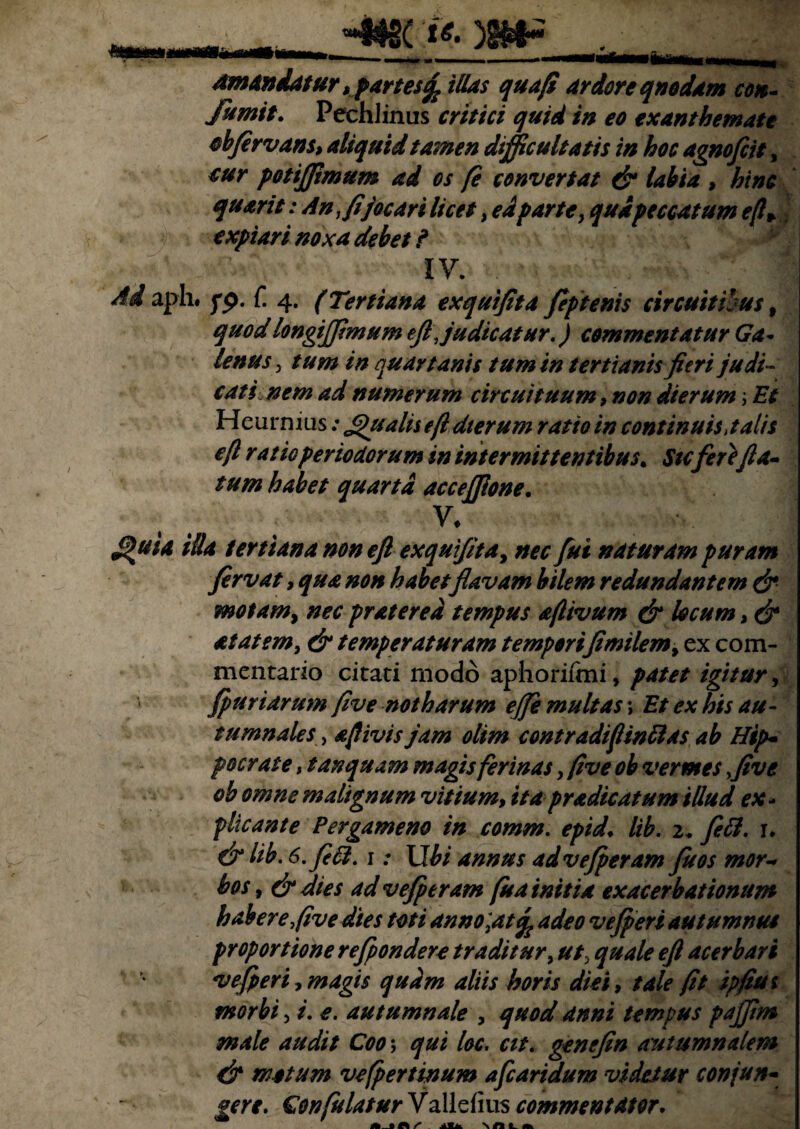 16.
amandatur, partesq́ illas quaſi ardore quodam con-
ſumit. Pechlinus critici quid in eo exanthemate
obſervans, aliquid tamen difficultatis in hoc agnoſcit,
cur potiſſimum ad os ſe convertat & labia, hinc
quærit: An, ſi jocari licet, eâ parte, quâ peccatum eſt,
expiari noxa debet?
IV.
Ad aph. 59. ſ. 4. (Tertiana exquiſita ſeptenis circuitibus,
quod longiſſimum eſt, judicatur.) commentatur Ga-
lenus, tum in quartanis tum in tertianis fieri judi-
cationem ad numerum circuituum, non dierum; Et
Heurnius: Qualis eſt dierum ratio in continuis, talis
eſt ratio periodorum in intermittentibus. Sic ferè ſta-
tum habet quartâ acceſſione.
V.
Quia illa tertiana non eſt exquiſita, nec ſui naturam puram
ſervat, quæ non habet flavam bilem redundantem &
motam, nec prætereà tempus æſtivum & locum, &
ætatem, & temperaturam tempori ſimilem, ex com-
mentario citati modò aphoriſmi, patet igitur,
ſpuriarum ſive notharum eſſe multas; Et ex his au-
tumnales, æſtivis jam olim contradiſtinctas ab Hip-
pocrate, tanquam magis ferinas, ſive ob vermes, ſive
ob omne malignum vitium, ita prædicatum illud ex-
plicante Pergameno in comm. epid. lib. 2. ſect. 1.
& lib. 6. ſect. 1: Ubi annus ad veſperam ſuos mor-
bos, & dies ad veſperam ſua initia exacerbationum
habere, ſive dies toti anno, atq́ adeo veſperi autumnus
proportione reſpondere traditur, ut, quale eſt acerbari
veſperi, magis quàm aliis horis diei, tale ſit ipſius
morbi, i. e. autumnale, quod anni tempus paſſim
male audit Coo; qui loc. cit. geneſin autumnalem
& motum veſpertinum aſcaridum videtur conjun-
gere. Conſulatur Valleſius commentator.